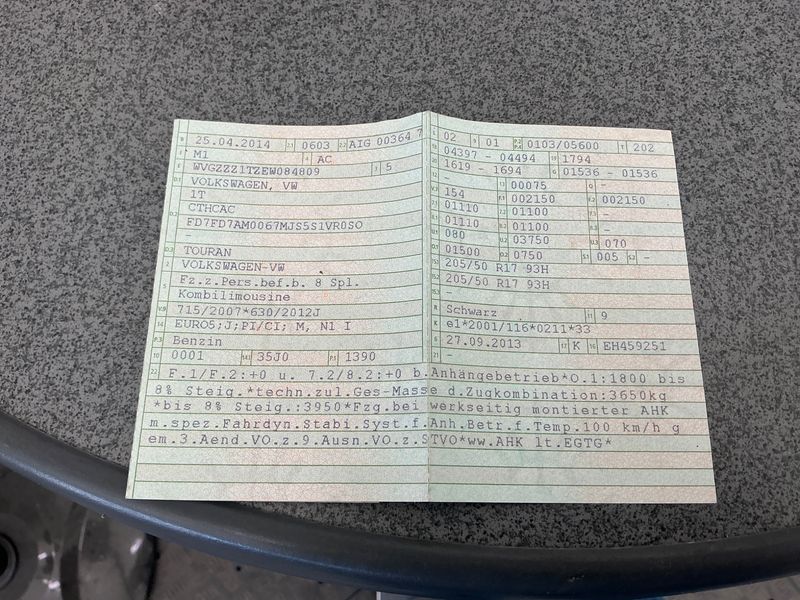 B 25.04.2014 2.1 0603 2.2 AIG 00364 7
J M1 4 AC
E WVGZZZ1TZEW084809 3 5
D.1 VOLKSWAGEN, VW
1T
D.2 CTHCAC
FD7FD7AM0067MJS5S1VR0SO
-
D.3 TOURAN
VOLKSWAGEN-VW
5 Fz.z.Pers.bef.b. 8 Spl.
Kombilimousine
V.9 715/2007*630/2012J
14 EURO5;J;PI/CI; M, N1 I
P.3 Benzin
10 0001 14.1 35J0 P.1 1390
L 02 9 01 P.2 P.4 0103/05600 T 202
18 04397 - 04494 19 1794
20 1619 - 1694 G 01536 - 01536
12 - 13 00075 Q -
V.7 154 F.1 002150 F.2 002150
7.1 01110 7.2 01100 7.3 -
8.1 01110 8.2 01100 8.3 -
U.1 080 U.2 03750 U.3 070
O.1 01500 O.2 0750 S.1 005 S.2 -
15.1 205/50 R17 93H
15.2 205/50 R17 93H
15.3 -
R Schwarz 11 9
K e1*2001/116*0211*33
6 27.09.2013 17 K 16 EH459251
21 -
22 F.1/F.2:+0 u. 7.2/8.2:+0 b.Anhängebetrieb*O.1:1800 bis
8% Steig.*techn.zul.Ges-Masse d.Zugkombination:3650kg
*bis 8% Steig.:3950*Fzg.bei werkseitig montierter AHK
m.spez.Fahrdyn.Stabi.Syst.f.Anh.Betr.f.Temp.100 km/h g
em.3.Aend.VO.z.9.Ausn.VO.z.STVO*ww.AHK lt.EGTG*